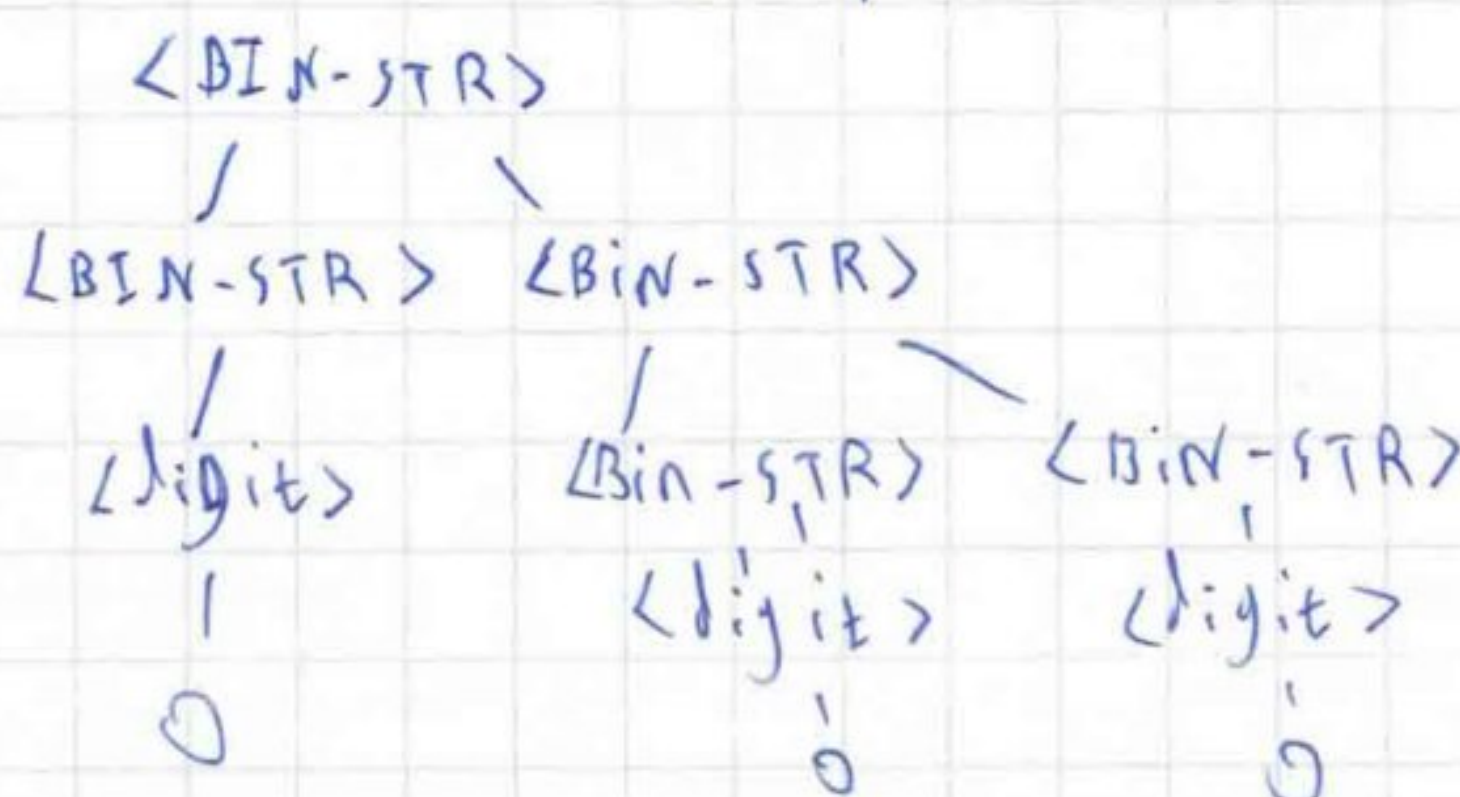 <BIN-STR>
<BIN-STR> <BiN-STR>
<digit> <Bin-STR> <BiN-STR>
<digit> <digit>
0
0 0